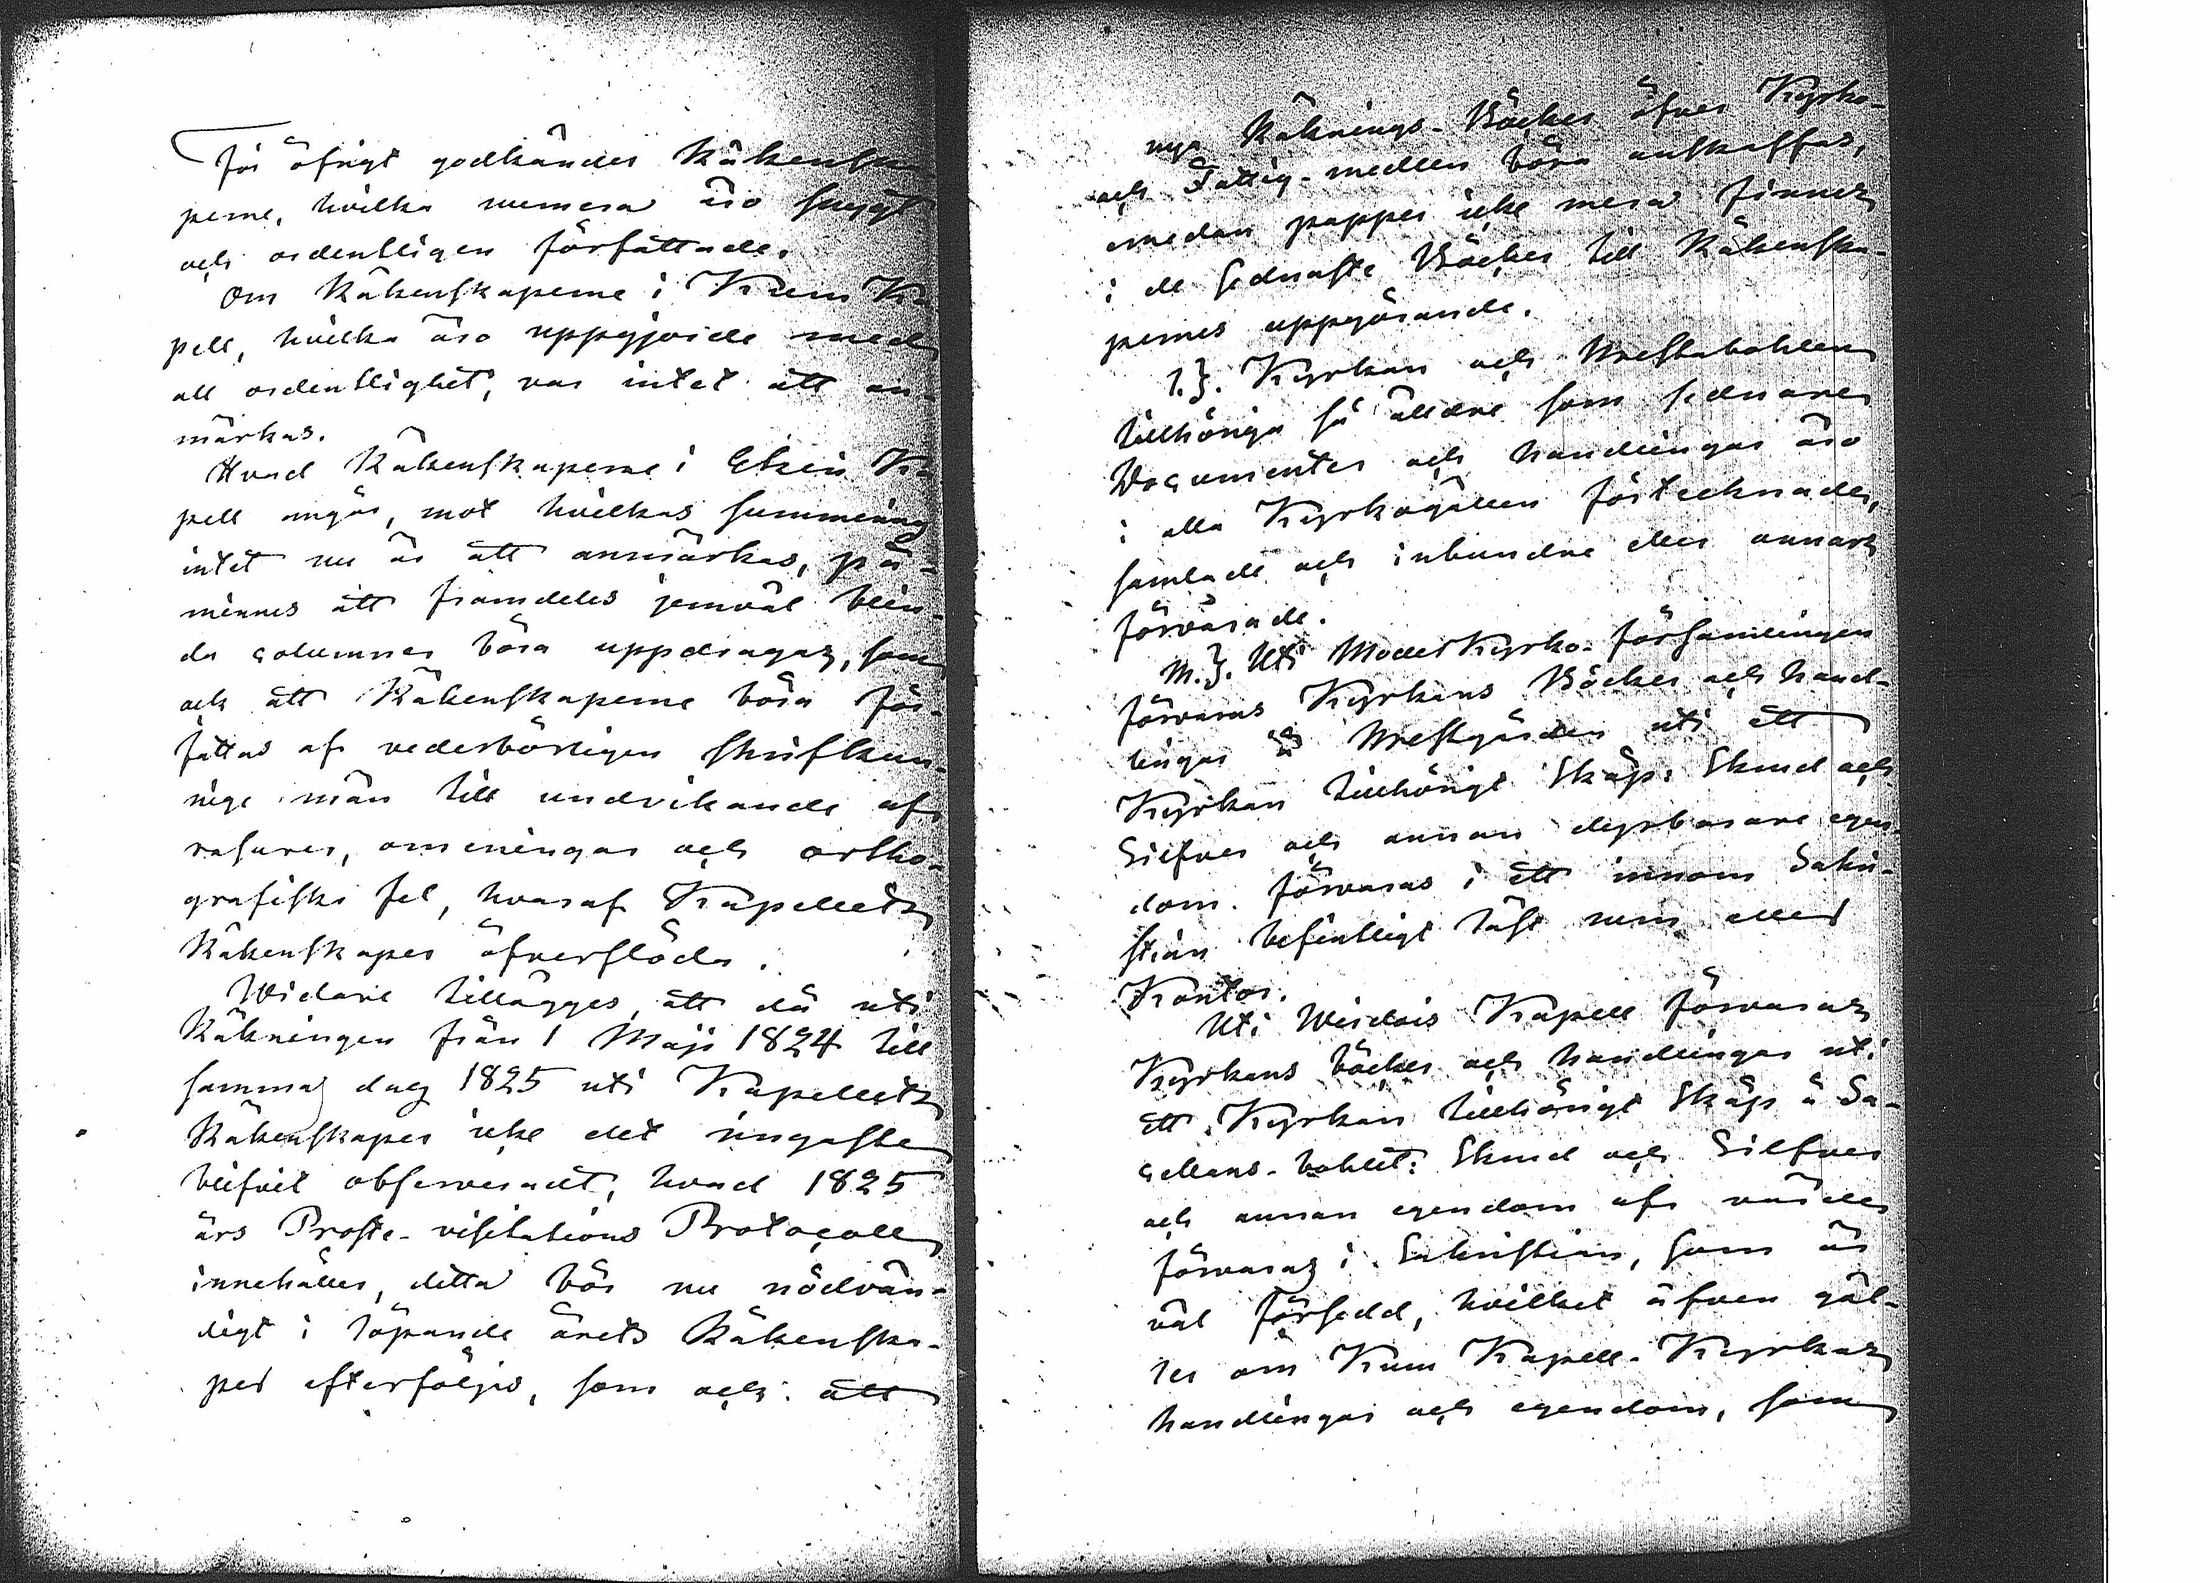 För öfrigt godkändes Räkenska-
perne, hvilka numera äro snyggt
och ordentligen författade.
Om Räkenskaperne i Kum Ka-
pell, hvilka äro uppgjorde med
all ordentlighet, var intet att an-
märkas.
Hvad Räkenskaperne i Esken Ka-
pell angår, mot hvilkas summering
intet nu är att anmärkas, på-
minnes att framdeles jemväl blin-
da columner böra uppdragas, som
ock att Räkenskaperne böra för-
fattas af vederbörligen skrifkun-
nige män till undvikande af
rasurer, omeningar och ortho-
grafiska fel, hvaraf Kapellets
Räkenskaper öfverflöda.
Widare tillägges, att då uti
Räkningen från 1 Maji 1824 till
samma dag 1825 uti Kapellets
Räkenskaper icke det ringaste
blifvit observeradt, hvad 1825
års Proste-visitations Protocoll
innehåller, detta bör nu nödvän-
digt i löpande årets Räkenska-
per efterföljas, som ock att
nya Räknings-Böcker öfver Kyrko-
och Fattig-medlen böra anskaffas,
emedan papper icke mera finnes
i de sednaste Böcker till Räkenska-
pernes uppgörande.
l.}. Kyrkan och Prestabohlen
tillhöriga så äldre som sednare
Documenter och handlingar äro
i alla Kyrkogällen förtecknade,
samlade och inbundne eller annars
förvarade.
m.}. Uti ModerKyrko-församlingen
förvaras Kyrkans Böcker och hand-
lingar å Prestgården uti ett
Kyrkan tillhörigt Skåp: Skrud och
Silfver och annan dyrbarare egen-
dom förvaras i ett innom Sakri-
stian befintligt låst rum eller
Kontor.
Uti Werdois Kapell förvaras
Kyrkans böcker och handlingar uti
ett Kyrkan tillhörigt Skåp å Sa-
cellans-bohlet: Skrud och Silfver
och annan egendom af värde
förvaras i Sakristian, som är
väl försedd, hvilket äfven gäl-
ler om Kum Kapell-Kyrkas
handlingar och egendom, som